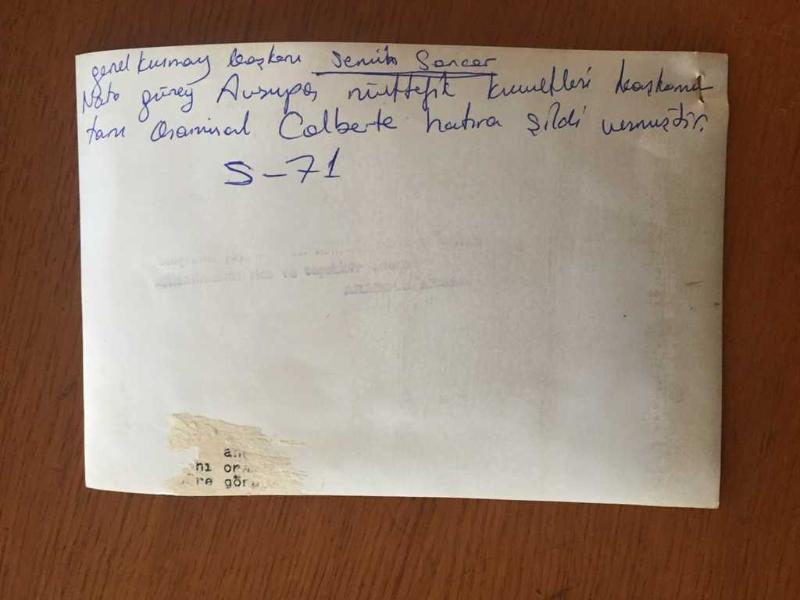 genel kurmay başkanı Semih Sancar
Nato güney Avrupa müttefik kuvvetleri başkomu
tanı Oramiral Colberte hatıra şildi vermiştir.
S-71
an
nı or
re gör